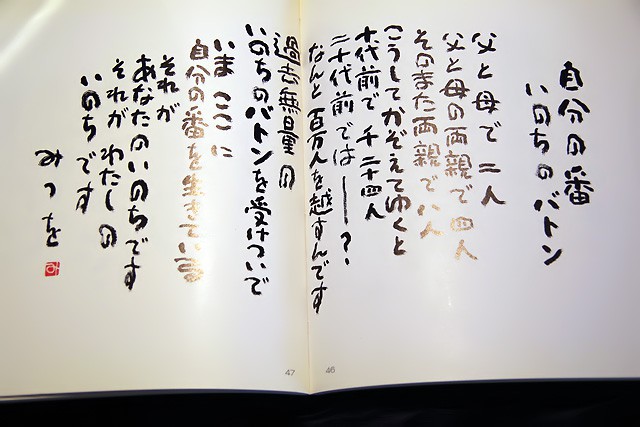 自分の番
いのちのバトン
父と母で二人
父と母の両親で四人
そのまた両親で八人
こうしてかぞえてゆくと
十代前で千二十四人
二十代前では―――?
なんと百万人を越すんです
過去無量の
いのちのバトンを受けついで
いまここに
自分の番を生きている
それが
あなたのいのちです
それがわたしの
いのちです
みつを
み
47
46